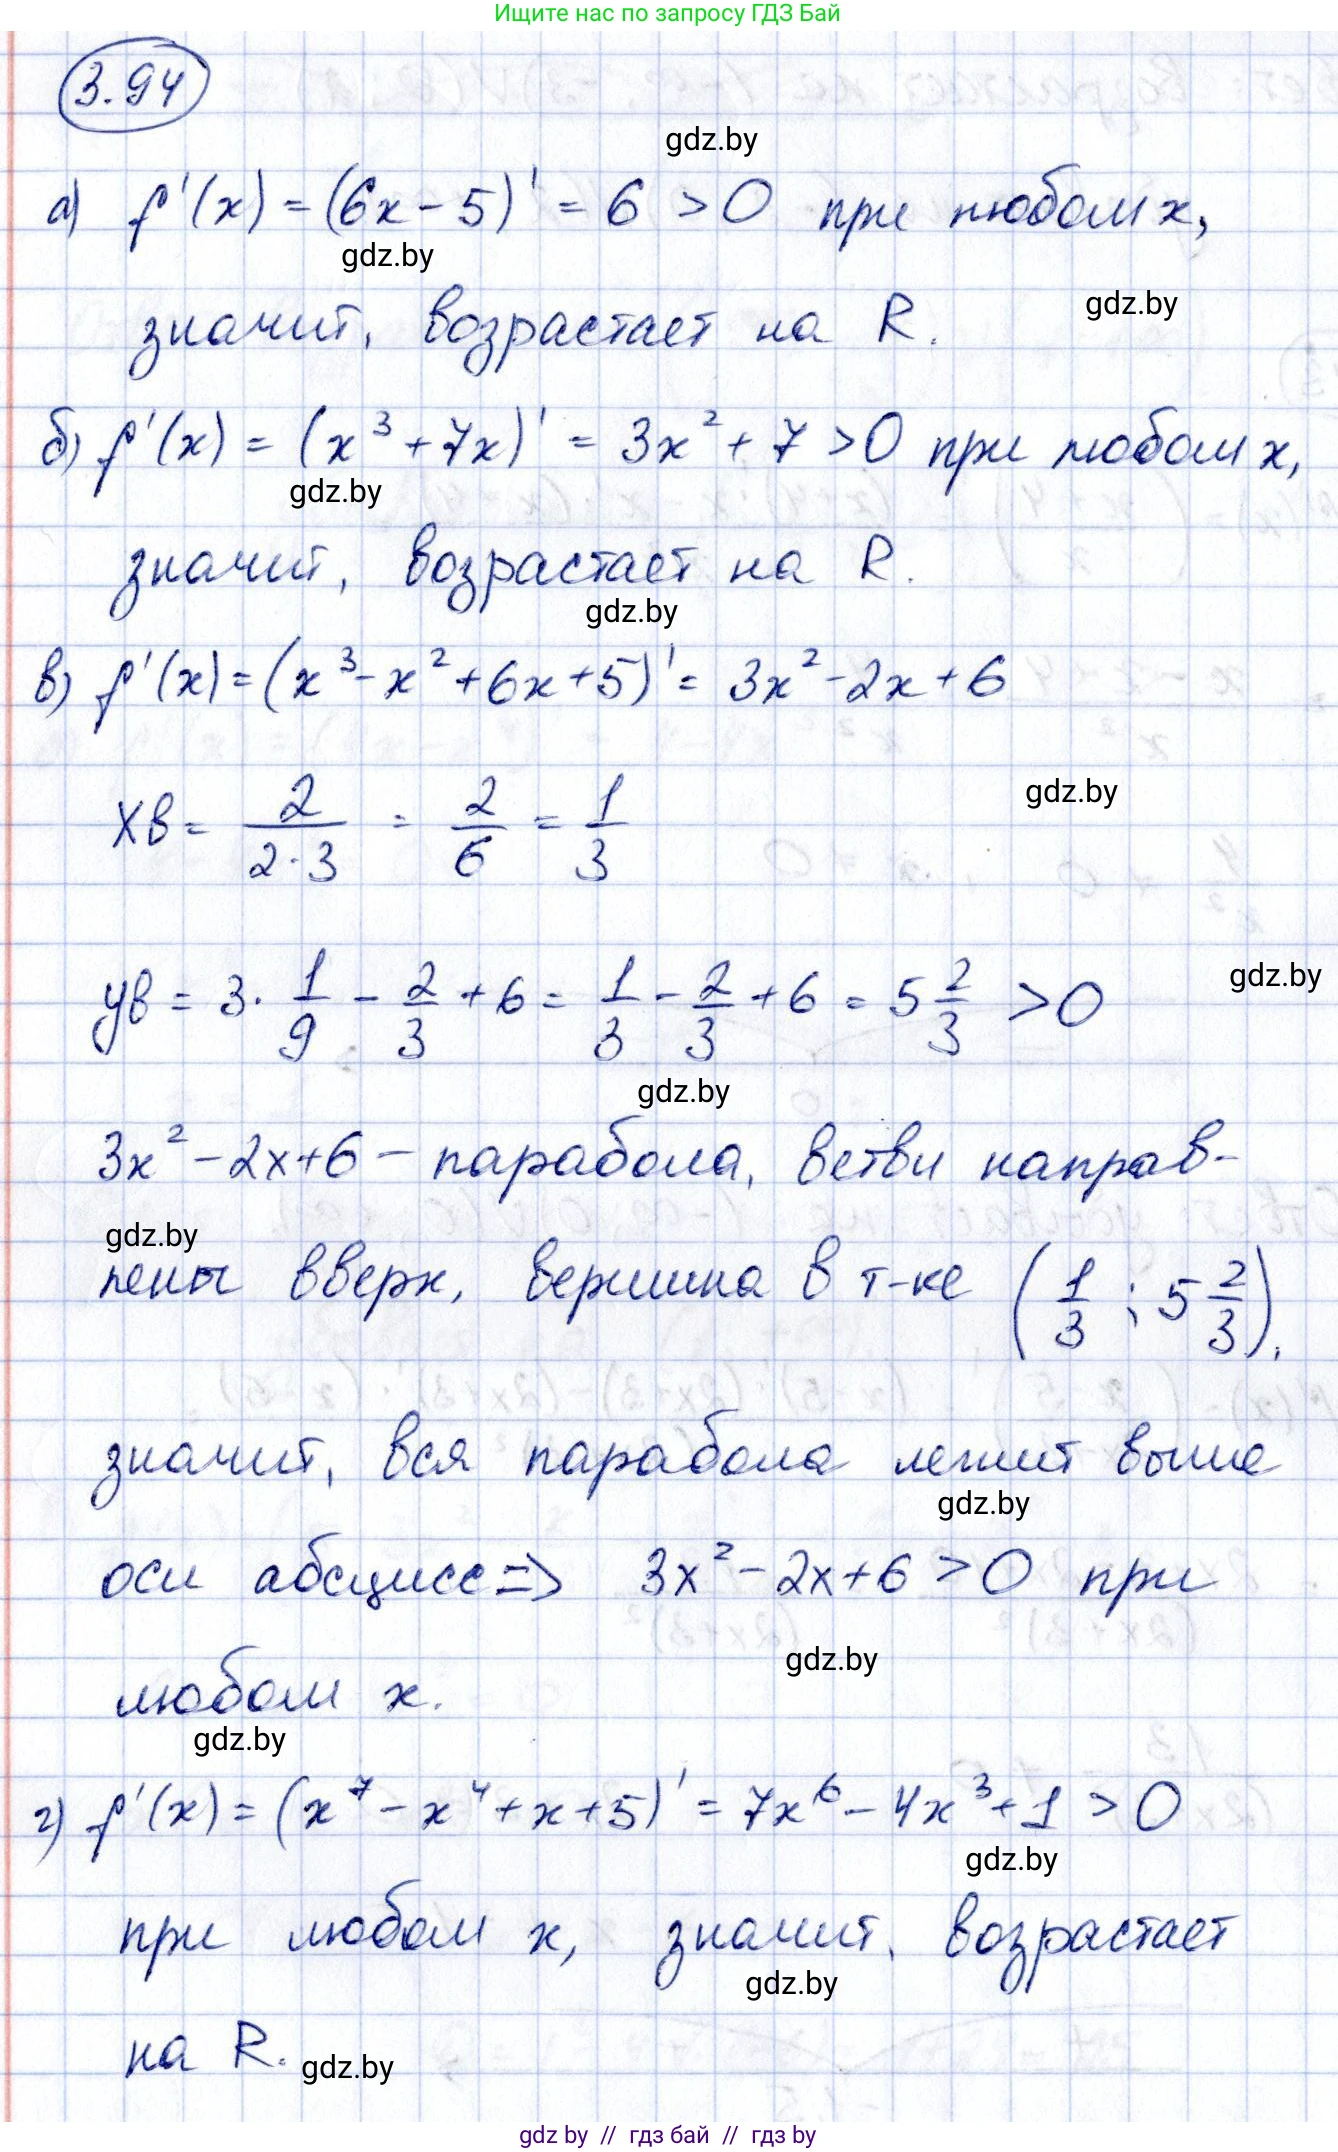 Ищите нас по запросу ГДЗ Бай
3.94
gdz.by
а) f'(x) = (6x - 5)' = 6 > 0 при любом x,
gdz.by
gdz.by
значит, возрастает на R.
б) f'(x) = (x³ + 7x)' = 3x² + 7 > 0 при любом x,
gdz.by
значит, возрастает на R.
gdz.by
в) f'(x) = (x³ - x² + 6x + 5)' = 3x² - 2x + 6
gdz.by
xв = 2/(2·3) = 2/6 = 1/3
gdz.by
yв = 3 · 1/9 - 2/3 + 6 = 1/3 - 2/3 + 6 = 5 2/3 > 0
gdz.by
3x² - 2x + 6 – парабола, ветви направ-
gdz.by
лены вверх, вершина в т-ке (1/3 ; 5 2/3),
значит, вся парабола лежит выше
gdz.by
оси абсцисс => 3x² - 2x + 6 > 0 при
gdz.by
любом x.
gdz.by
г) f'(x) = (x⁷ - x⁴ + x + 5)' = 7x⁶ - 4x³ + 1 > 0
gdz.by
при любом x, значит, возрастает
gdz.by
на R.
gdz.by
gdz by // гдз бай // гдз by